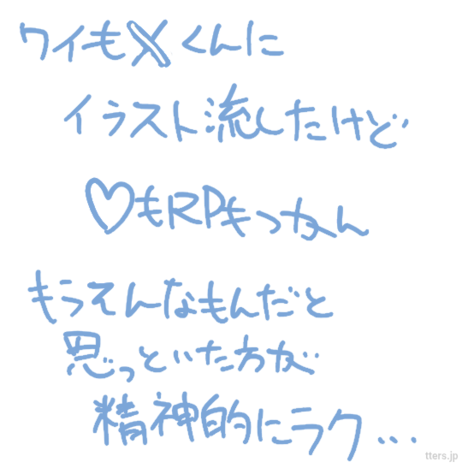 ワイもXくんに
イラスト流したけど
♡もRPもつかん
もうそんなもんだと
思っといた方が
精神的にラク...
tters.jp